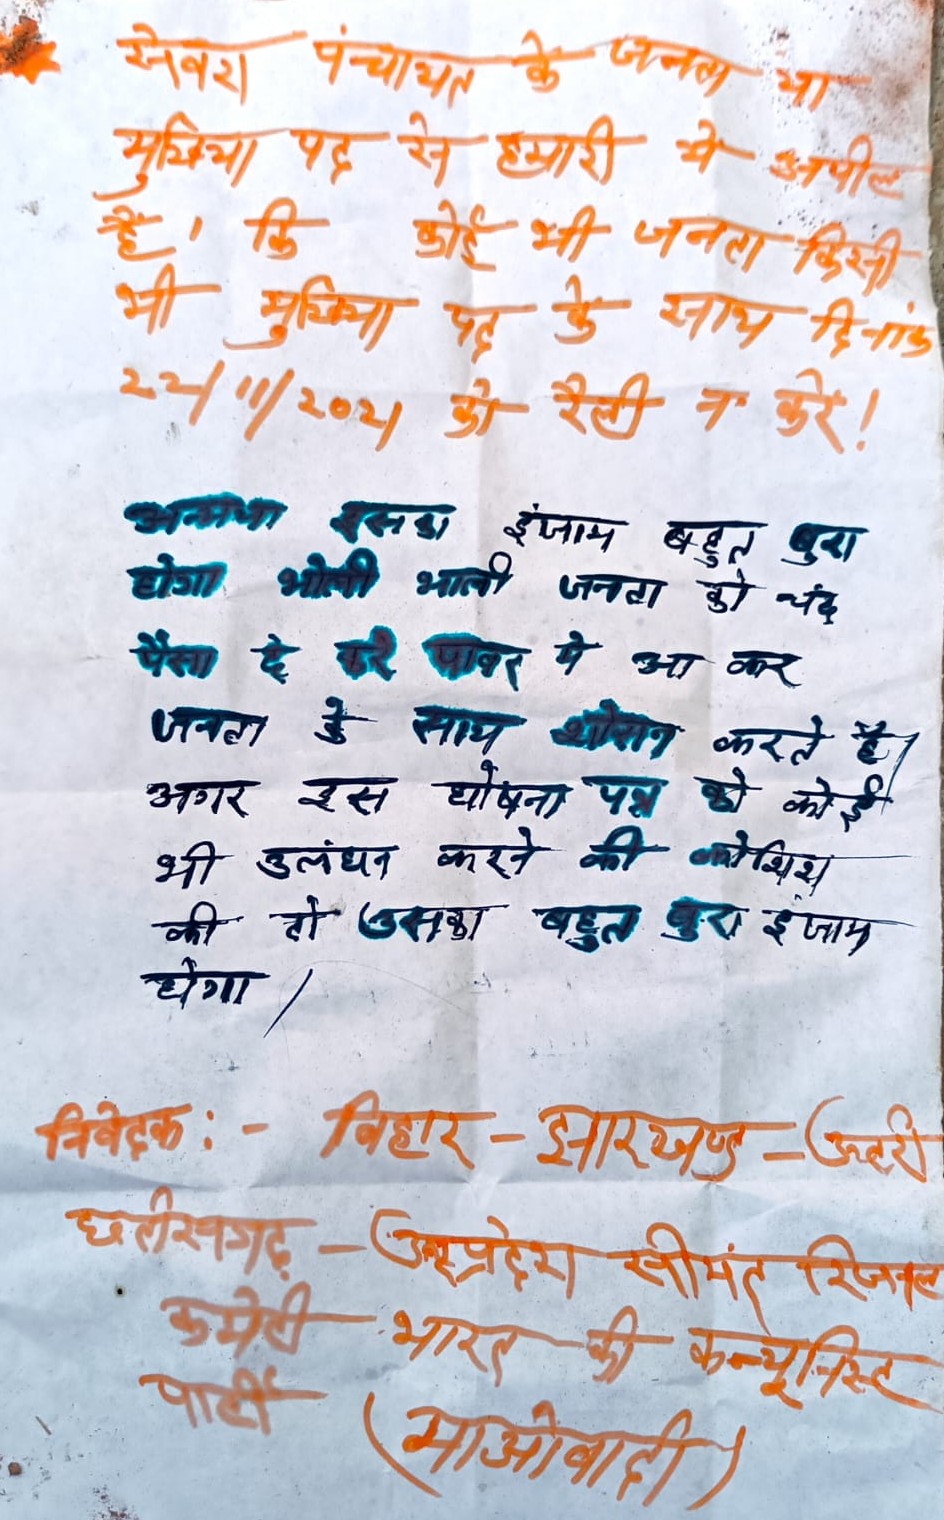 सेवरा पंचायत के जनता या
मुखिया पद से हमारी ये अपील
है। कि कोई भी जनता किसी
भी मुखिया पद के साथ दिनांक
22/11/2021 को रैली न करें!
अन्यथा इसका इंजाम बहुत बुरा
होगा भोली भाली जनता को चंद
पैसा दे करे पावर मे आ कर
जनता के साथ शोसन करते है।
अगर इस घोषना पत्र को कोई
भी उलंघन करने की कोशिश
की तो उसका बहुत बुरा इंजाम
होगा /
निवेदक :- बिहार - झारखण्ड - उत्तरी
छत्तीसगढ़ - उत्प्रदेश सीमांत रिजनल
कमेटी भारत की कम्यूनिस्ट
पार्टी (माओवादी)